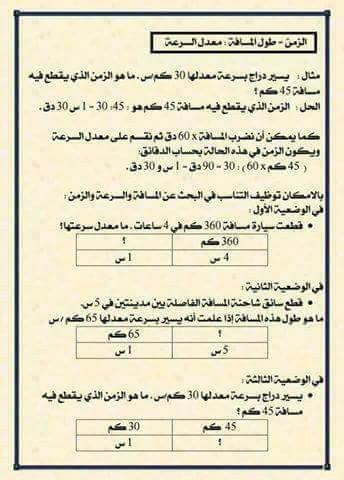 الزمن - طول المسافة : معدل السرعة
مثال : يسير دراج بسرعة معدلها 30 كم/س . ما هو الزمن الذي يقطع فيه
مسافة 45 كم ؟
الحل : الزمن الذي يقطع فيه مسافة 45 كم هو : 45: 30 - 1 س 30 دق .
كما يمكن أن نضرب المسافة x 60 دق ثم نقسم على معدل السرعة
ويكون الزمن في هذه الحالة بحساب الدقائق:
( 45 كم x 60 ) : 30 - 90 دق - 1 س و 30 دق .
بالامكان توظيف التناسب في البحث عن المسافة والسرعة والزمن :
في الوضعية الأولى :
• قطعت سيارة مسافة 360 كم في 4 ساعات . ما معدل سرعتها؟
360 كم ؟
4 س 1 س
في الوضعية الثانية :
• قطع سائق شاحنة المسافة الفاصلة بين مدينتين في 5 س .
ما هو طول هذه المسافة إذا علمت أنه يسير بسرعة معدلها 65 كم / س
؟ 65 كم
5 س 1 س
في الوضعية الثالثة :
• يسير دراج بسرعة معدلها 30 كم/س . ما هو الزمن الذي يقطع فيه
مسافة 45 كم ؟
45 كم 30 كم
؟ 1 س